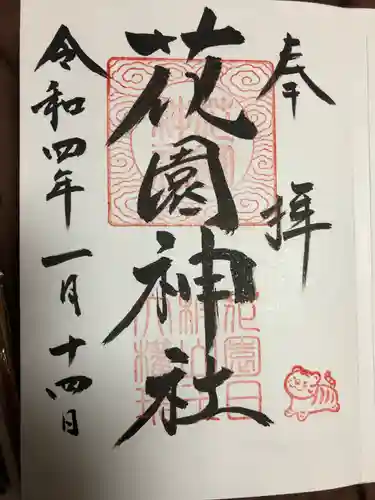 奉拝
花園神社
令和四年一月十四日